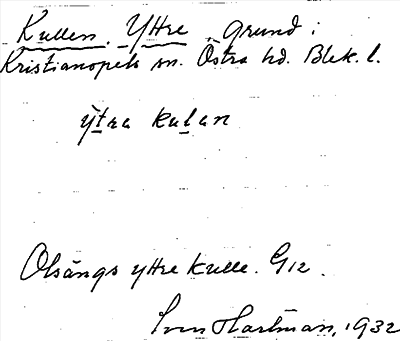 Kullen, Yttre, Grund i
Kristianopels sn. Östra hd. Blek. l.
ýtra kulan
Olsängs yttre kulle. G12.
Sven Hartman, 1932